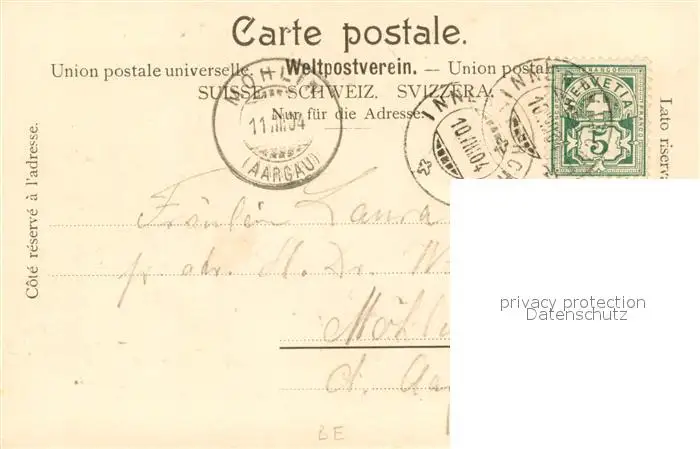 Carte postale.
Union postale universelle. — Weltpostverein. — Union postale
SUISSE. SCHWEIZ. SVIZZERA.
Nur für die Adresse.
MÖHLIN
11.III.04
(AARGAU)
INNE
10.III.04
INNE
10
HELVETIA
FRANCO
5
Côté réservé à l'adresse.
Lato riserva
Fräulein Laura
p. adr. H. Dr. W
Möhli
Ct. Aa
BE
privacy protection
Datenschutz